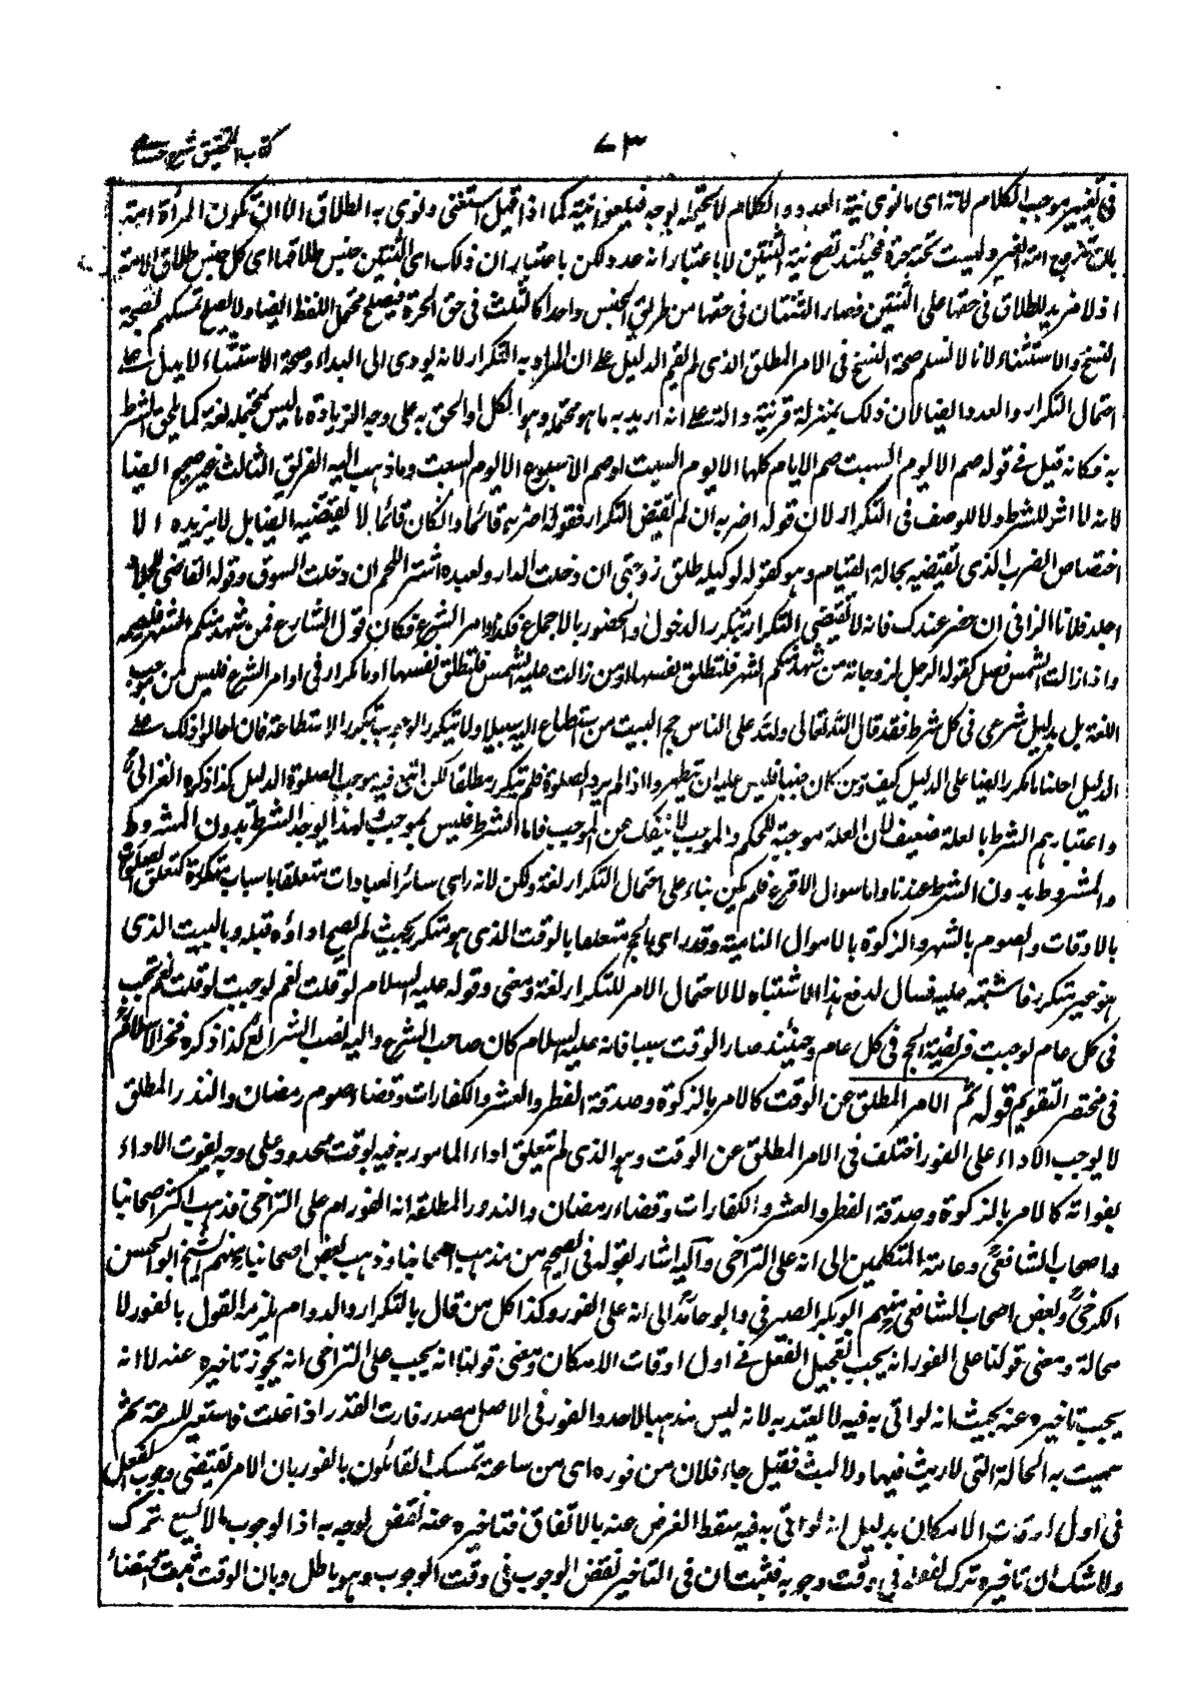 كتاب التحقيق شرح حسامى
٧٣
فى تغيير موجب الكلام لانه اى ما نوى نية العدد والكلام لا يحتمله لوجه فيلغو نيته كما اذا قيل استغنى ونوى به الطلاق الا ان تكون المرأة امة
بان تزوج امة الغير وليست تحته حرة فحينئذ تصح نية الثنتين لا باعتبار انه عدد ولكن باعتبار ان ذلك اى الثنتين جنس طلاقها اى كل جنس طلاق الامة
اذ لا مزيد للطلاق فى حقها على الثنتين فصار الثنتان فى حقها من طريق الجنس واحدا كالثلث فى حق الحرة فيصلح محتمل اللفظ ايضا ولا يصلح تمسكهم لصحة
النسخ والاستثناء لانا لا نسلم صحة النسخ فى الامر المطلق الذى لم يقم الدليل على ان المراد به التكرار لانه يودى الى البداء وصحة الاستثناء لا يدل على
احتمال التكرار والعدد ايضا لان ذلك بمنزلة قرينة دالة على انه اريد به ما هو محتمله وهو الكل او الحق به على وجه الزيادة ما ليس بمحتمله لغة كما يلحق الشرط
به فكانه قيل فى قوله صم الا يوم السبت صم الايام كلها الا يوم السبت او صم الاسبوع الا يوم السبت وما ذهب اليه الفريق الثالث غير صحيح ايضا
لانه لا اثر للشرط ولا للوصف فى التكرار لان قوله اضربه ان لم يقتض التكرار فقوله اضربه قائما وان كان قائما لا يقتضيه ايضا بل لا يزيده الا
اختصاص الضرب الذى يقتضيه بحالة القيام وهو كقوله لوكيله طلق زوجتى ان دخلت الدار ولعبده اشتر اللحم ان دخلت السوق وقوله القاضى للجلاد
اجلد فلانا الزانى ان حضر عندك فانه لا يقتضى التكرار بتكرر الدخول والحضور بالاجماع فكذا اوامر الشرع فكان قول الشارع فمن شهد منكم الشهر فليصمه
واذا زالت الشمس فصل كقول الرجل لزوجاته من شهد منكم الشهر فلتطلق نفسها ومن زالت عليه الشمس فلتطلق نفسها اوما تكرار فى اوامر الشرع فليس من موجب
اللغة بل بدليل شرعى فى كل شرط فقد قال الله تعالى ولله على الناس حج البيت من استطاع اليه سبيلا ولا يتكرر الوجوب بتكرر الاستطاعة فان احالوا ذلك على
الدليل احلنا ما تكرر ايضا على الدليل كيف ومن كان جنبا فليس عليه ان يتطهر اذا لم يرد الصلوة فلم يتكرر مطلقا لكن اتبع فيه موجب الصلوة الدليل كذا ذكره الغزالى
واعتبارهم الشرط بالعلة ضعيف لان العلة موجبة للحكم والموجب لا ينفك عن الموجب فاما الشرط فليس بموجب ولهذا يوجد الشرط بدون المشروط
والمشروط بدون الشرط عندنا واما سوال الاقرع فلم يكن بناء على احتمال التكرار لغة ولكن لانه راى سائر العبادات متعلقا باسباب متكررة كتعلق الصلوة
بالاوقات والصوم بالشهر والزكوة بالاموال النامية وقد راى الحج متعلقا بالوقت الذى هو متكرر بحيث لم يصح اداؤه قبله وبالبيت الذى
هو غير متكرر فاشتبه عليه فسال لدفع هذا الاشتباه لا لاحتمال الامر للتكرار لغة ومعنى وقوله عليه السلام لو قلت نعم لوجبت لو قلت نعم تجب
فى كل عام لوجبت فريضة الحج فى كل عام وحينئذ صار الوقت سببا فانه عليه السلام كان صاحب الشرع واليه نصب الشرائع كذا ذكره فخر الاسلام
فى مختصر التقويم قوله ثم الامر المطلق عن الوقت كالامر بالزكوة وصدقة الفطر والعشر والكفارات وقضاء صوم رمضان والنذر المطلق
لا يوجب الاداء على الفور اختلف فى الامر المطلق عن الوقت وهو الذى لم تعلق اداء المامور به فيه بوقت محدود على وجه يفوت الاداء
بفواته كالامر بالزكوة وصدقة الفطر والعشر والكفارات وقضاء رمضان والنذور المطلقة انه للفور ام على التراخى فذهب اكثر اصحابنا
واصحاب الشافعى وعامة المتكلمين الى انه على التراخى واليه اشار بقوله فى الصحيح من مذهب اصحابنا وذهب بعض اصحابنا منهم الشيخ ابو الحسن
الكرخى وبعض اصحاب الشافعى منهم ابو بكر الصيرفى وابو حامد الى انه على الفور وكذا كل من قال بالتكرار والدوام يلزمه القول بالفور لا
محالة ومعنى قولنا على الفور انه يجب تعجيل الفعل فى اول اوقات الامكان ومعنى قولنا انه يجب على التراخى انه يجوز تاخيره عنه لا انه
يجب تاخيره عنه بحيث انه لو اتى به فيه لا يعتد به لانه ليس مذهبا لاحد والفور فى الاصل مصدر فارت القدر اذا غلت فاستعير للسرعة ثم
سميت به الحالة التى لا ريث فيها ولا لبث فقيل جاء فلان من فوره اى من ساعته تمسك القائلون بالفور بان الامر يقتضى وجوب الفعل
فى اول اوقات الامكان بدليل انه لو اتى به فيه سقط الفرض عنه بالاتفاق فتاخيره عنه نقض لوجوبه اذ الوجوب ما لا يسع تركه
ولا شك ان تاخيره ترك لفعله فى وقت وجوبه فثبت ان فى التاخير نقض الوجوب فى وقت الوجوب وهو باطل وبان الوقت ثبت مقتضا